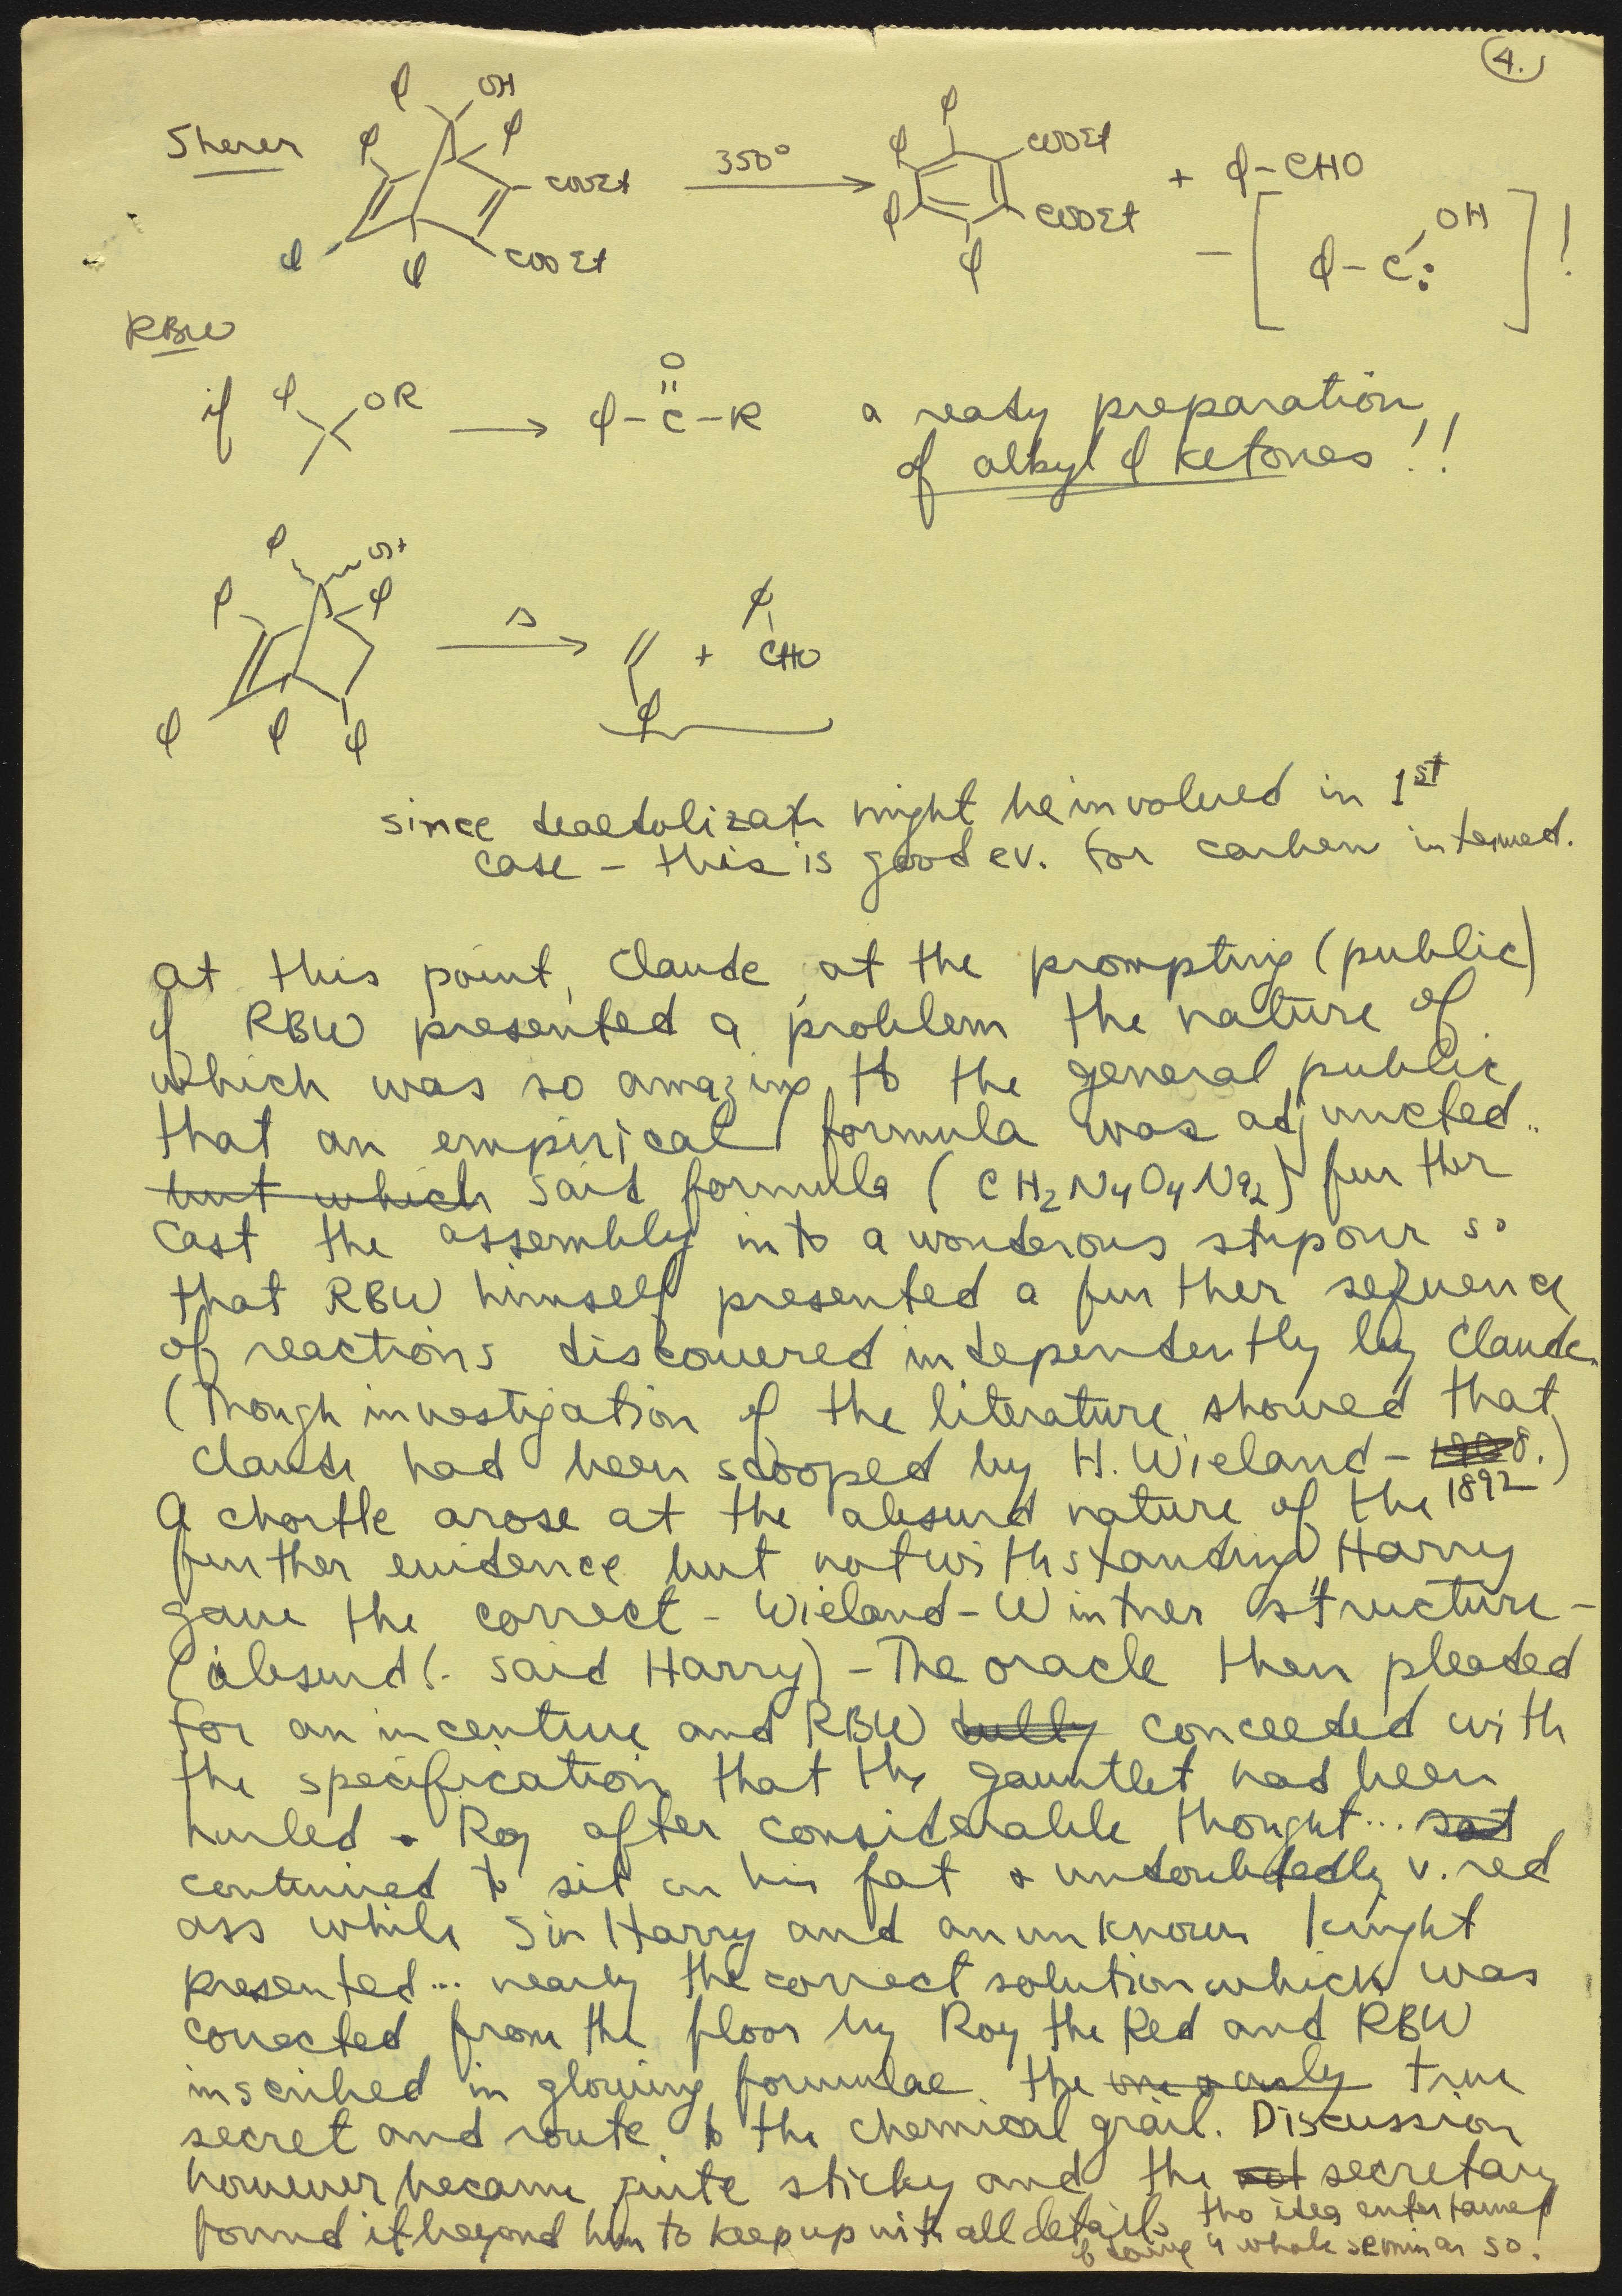 4.
Sherer φ OH φ φ COOEt φ φ COOEt 350° φ φ φ φ COOEt COOEt + φ-CHO
- [ φ-C: OH ] !
RBW
if φ OR → φ-C-R O a ready preparation
of alkyl φ ketones!!
φ φ φ φ φ φ Δ → + φ CHO
φ
since deaedolizatn might be involved in 1st
case - this is good ev. for carben intermed.
at this point, Claude, at the prompting (public)
of RBW presented a problem the nature of
which was so amazing to the general public
that an empirical formula was adjuncted..
but which said formula (CH2N4O4Na2) further
cast the assembly into a wonderous stupour so
that RBW himself presented a further sequence
of reactions discouvered independently by Claude.
(Though investigation of the literature showed that
Claude had been scooped by H. Wieland - 1908.)
1892
A chortle arose at the absurd nature of the
further evidence but notwithstanding Harry
gave the correct - Wieland-Wintner "structure -
(absurd! - said Harry) - The oracle then pleaded
for an incentive and RBW conceeded with
the specification that the gauntlet had been
hurled. Roy after considerable thought... sat
continued to sit on his fat & undoubtedly v. red
ass while Sir Harry and an unknown knight
presented... nearly the correct solution which was
corrected from the floor by Roy the Red and RBW
inscribed in glowing formulae the one & only true
secret and route to the chemical grail. Discussion
however became quite sticky and the secretary
found it beyond him to keep up with all details tho idea entertained
of doing a whole seminar so.